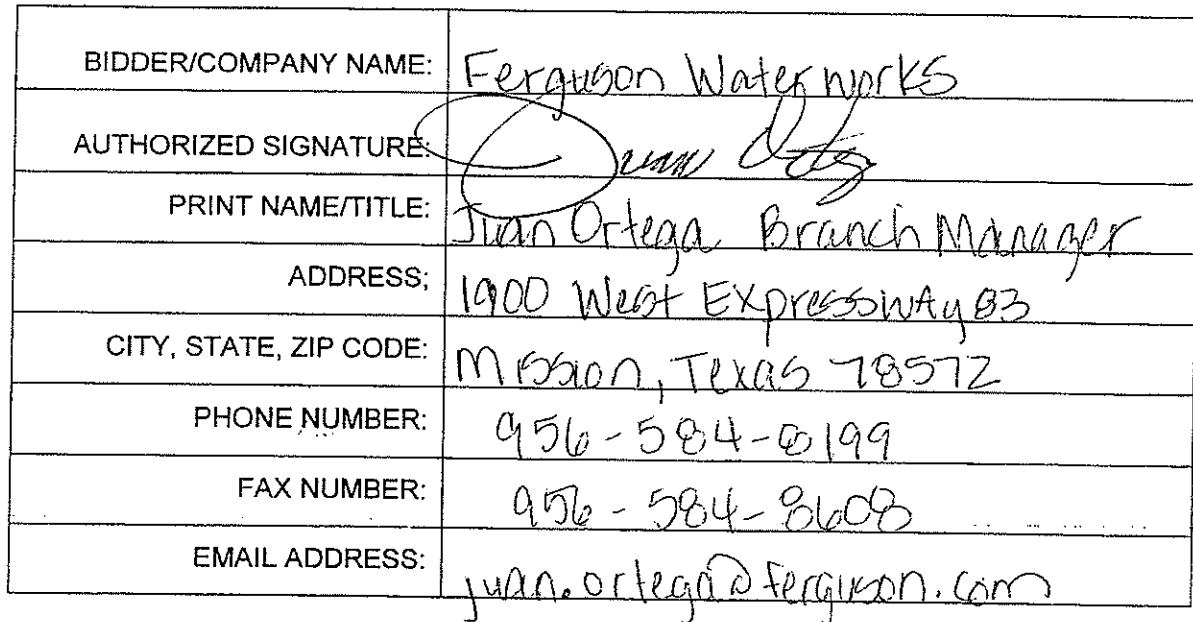 BIDDER/COMPANY NAME: Ferguson Waterworks
AUTHORIZED SIGNATURE: Juan Ortega
PRINT NAME/TITLE: Juan Ortega Branch Manager
ADDRESS; 1900 West Expressway 83
CITY, STATE, ZIP CODE: Mission, Texas 78572
PHONE NUMBER: 956-584-8199
FAX NUMBER: 956-584-8608
EMAIL ADDRESS: juan.ortega@ferguson.com